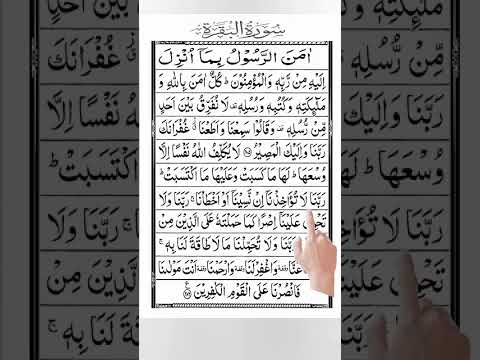 سُورَةُ الْبَقَرَة
اٰمَنَ الرَّسُوْلُ بِمَاۤ اُنْزِلَ
اِلَيْهِ مِنْ رَّبِّهٖ وَالْمُؤْمِنُوْنَ ؕ كُلٌّ اٰمَنَ بِاللّٰهِ وَ
مَلٰٓئِكَتِهٖ وَكُتُبِهٖ وَرُسُلِهٖ ۟ لَا نُفَرِّقُ بَيْنَ اَحَدٍ
مِّنْ رُّسُلِهٖ ۟ وَقَالُوْا سَمِعْنَا وَاَطَعْنَا ۫ غُفْرَانَكَ
رَبَّنَا وَاِلَيْكَ الْمَصِيْرُ ﴿۲۸۵﴾ لَا يُكَلِّفُ اللّٰهُ نَفْسًا اِلَّا
وُسْعَهَا ؕ لَهَا مَا كَسَبَتْ وَعَلَيْهَا مَا اكْتَسَبَتْ ؕ
رَبَّنَا لَا تُؤَاخِذْنَاۤ اِنْ نَّسِيْنَاۤ اَوْ اَخْطَاْنَا ۚ رَبَّنَا وَلَا
تَحْمِلْ عَلَيْنَاۤ اِصْرًا كَمَا حَمَلْتَهٗ عَلَى الَّذِيْنَ مِنْ
رَبَّنَا وَلَا تُحَمِّلْنَا مَا لَا طَاقَةَ لَنَا بِهٖ ۚ
عَنَّا ۥ وَاغْفِرْ لَنَا ۥ وَارْحَمْنَا ۥ اَنْتَ مَوْلٰىنَا
فَانْصُرْنَا عَلَى الْقَوْمِ الْكٰفِرِيْنَ ﴿۲۸۶﴾